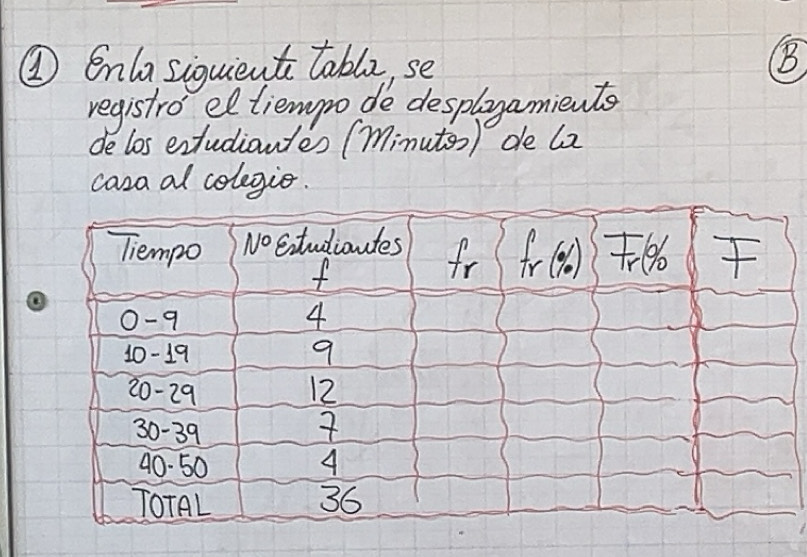 1 En la siguiente tabla, se
registró el tiempo de desplazamiento
de los estudiantes (Minutos) de la
casa al colegio.
B
Tiempo Nº Estudiantes f fr fr (%) Fr(% F
0-9 4
10-19 9
20-29 12
30-39 7
40-50 4
TOTAL 36